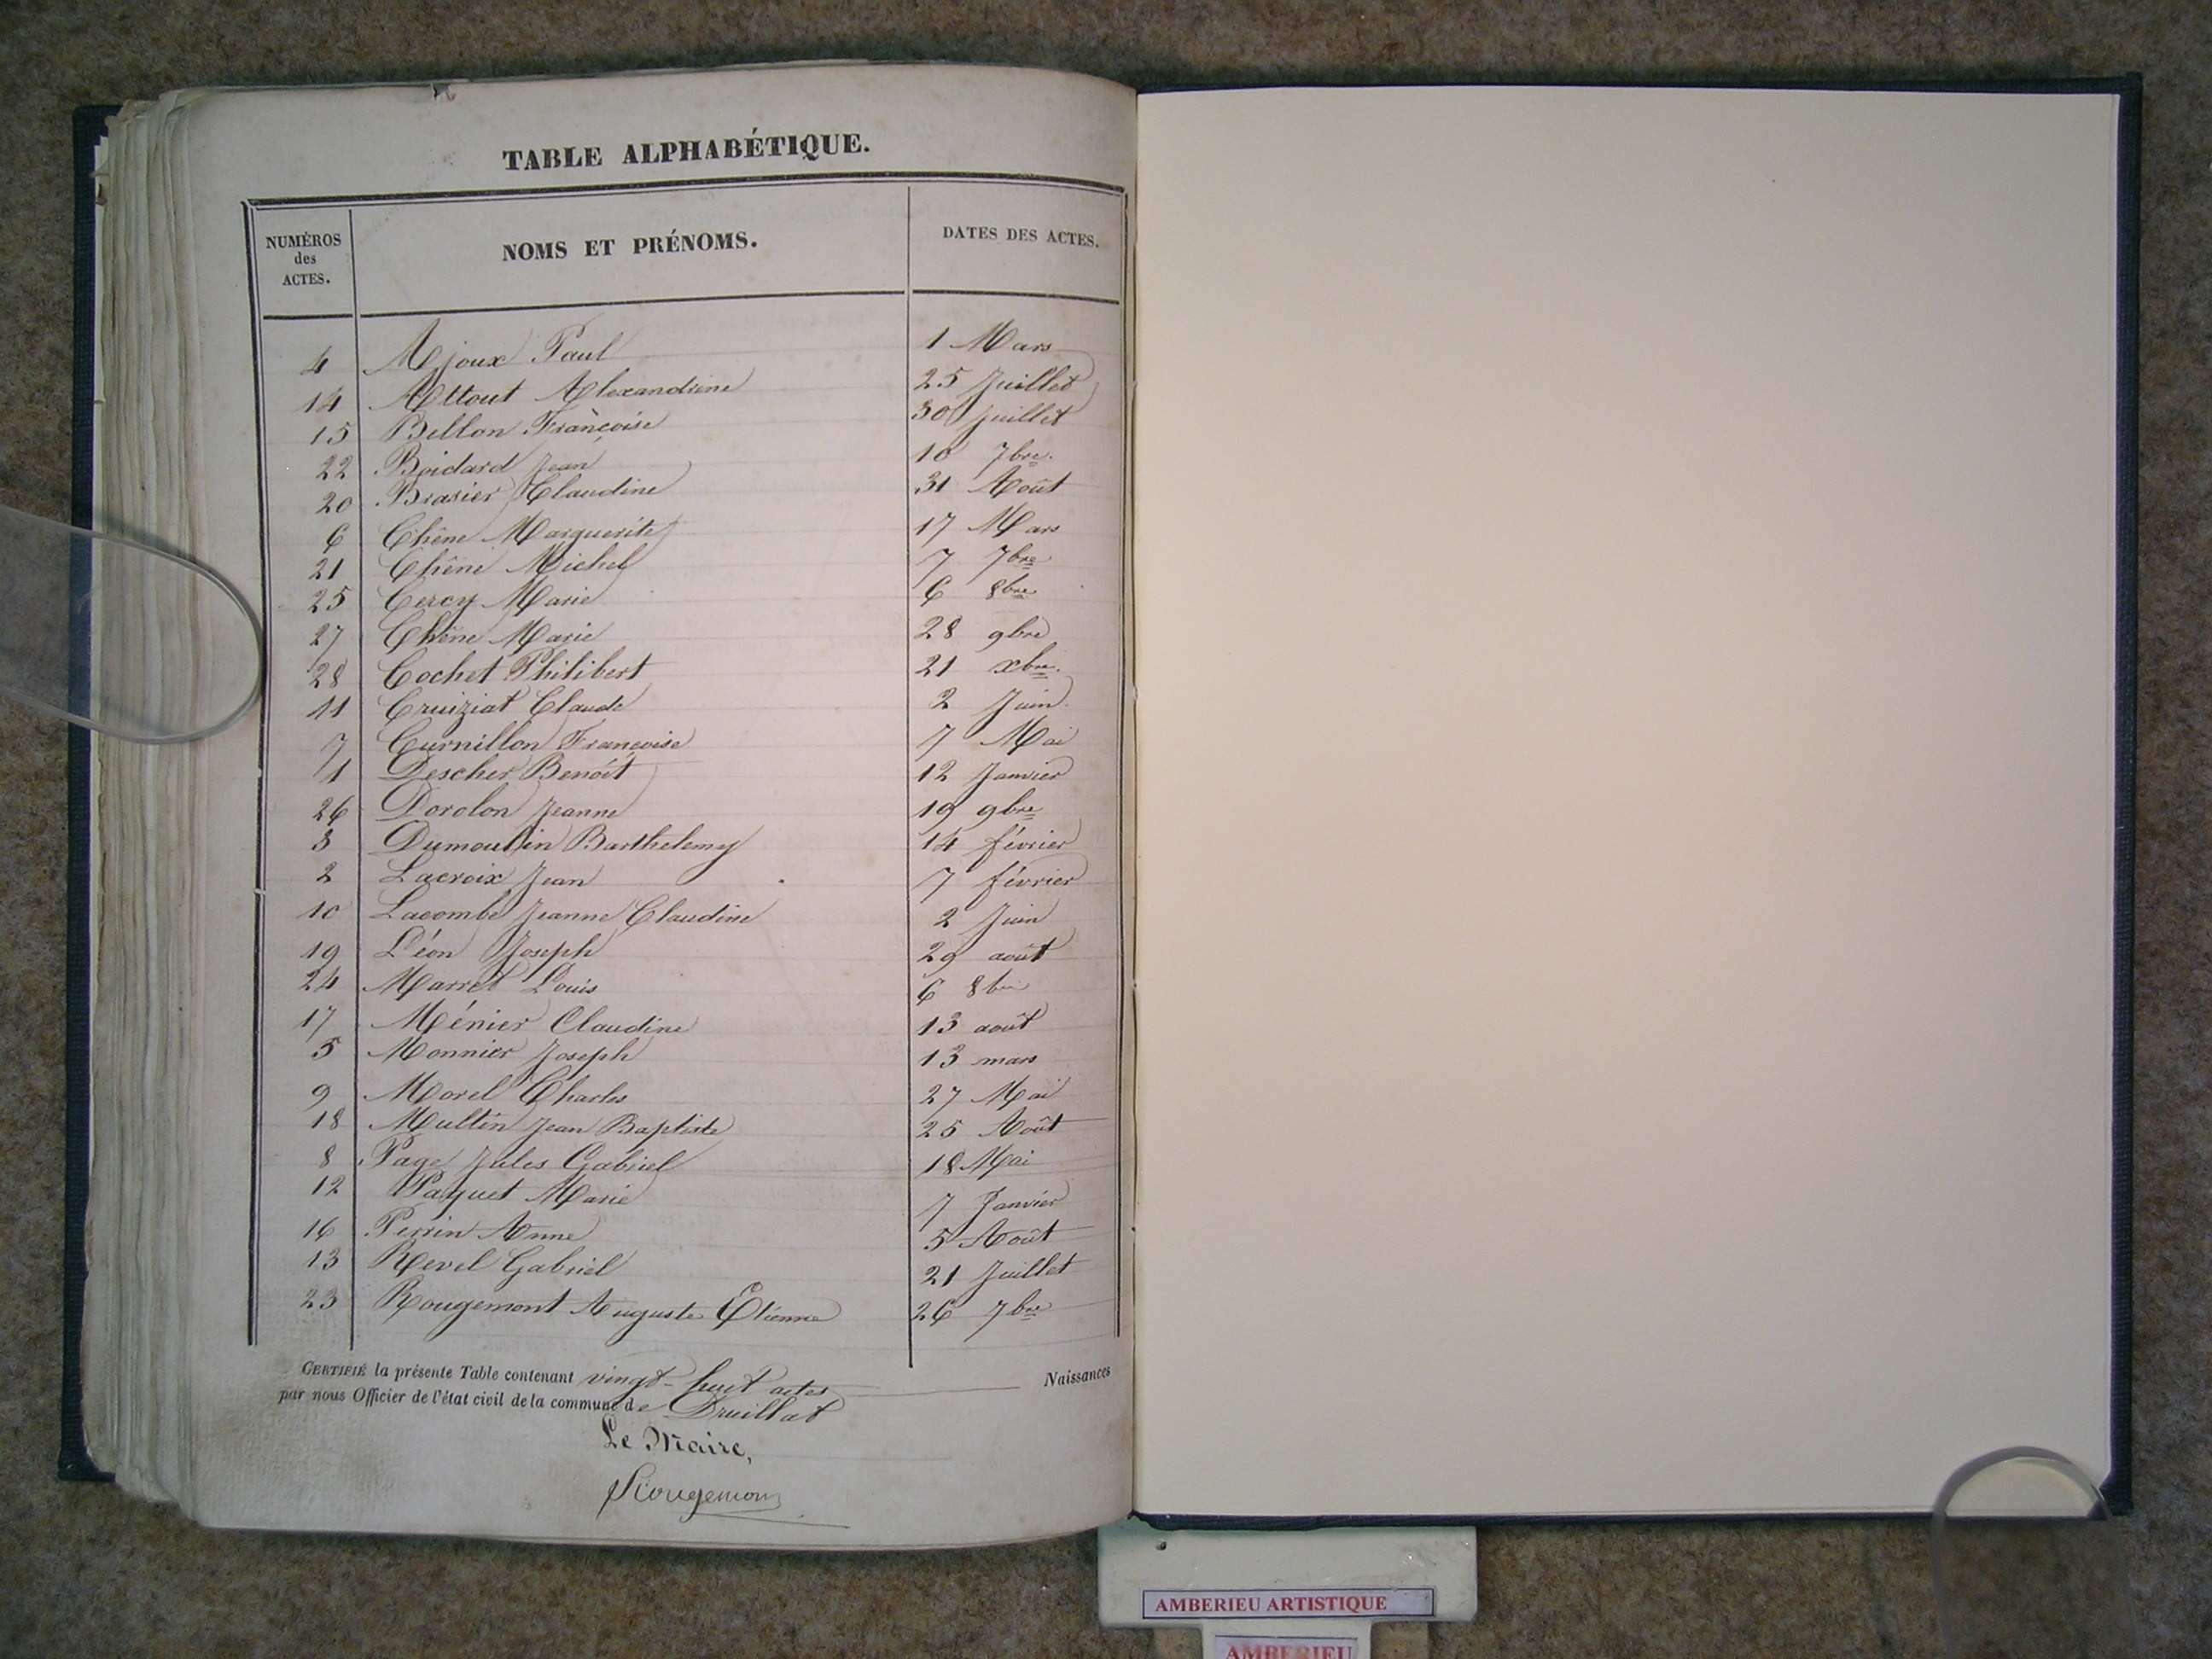 TABLE ALPHABÉTIQUE.
NUMÉROS des ACTES. NOMS ET PRÉNOMS. DATES DES ACTES.
4 Ajoux Paul 1 Mars
14 Attout Alexandrine 25 Juillet
15 Bellon Françoise 30 Juillet
22 Boidard Jean 10 7bre.
20 Brasier Claudine 31 Août
6 Chêne Marguerite 17 Mars
21 Chêne Michel 7 7bre
25 Cercy Marie 6 8bre
27 Chêne Marie 28 9bre
28 Cochet Philibert 21 xbre.
11 Cruiziat Claude 2 Juin
7 Curnillon Françoise 7 Mai
1 Descher Benoît 12 Janvier
26 Dorolon Jeanne 19 9bre
3 Dumoulin Barthelemy 14 février
2 Lacroix Jean 7 février
10 Lacombe Jeanne Claudine 2 Juin
19 Léon Joseph 29 août
24 Marret Louis 6 8bre
17 Ménier Claudine 13 août
5 Monnier Joseph 13 mars
9 Morel Charles 27 Mai
18 Multin Jean Baptiste 25 Août
8 Page Jules Gabriel 18 Mai
12 Paquet Marie 7 Janvier
16 Perrin Anne 5 Août
13 Revel Gabriel 21 Juillet
23 Rougemont Auguste Etienne 26 7bre
CERTIFIÉ la présente Table contenant vingt-huit actes Naissances
par nous Officier de l'état civil de la commune de Druillat
Le Maire,
Rougemont
AMBERIEU ARTISTIQUE
AMBERIEU